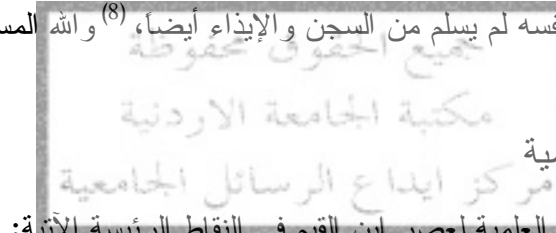 لم يسلم من السجن والإيذاء أيضاً، (8) والله
جميع الحقوق محفوظة
مكتبة الجامعة الاردنية
مركز ايداع الرسائل الجامعية
العلمية لعصر ابن القيم في النقاط الرئيسة الآتية: